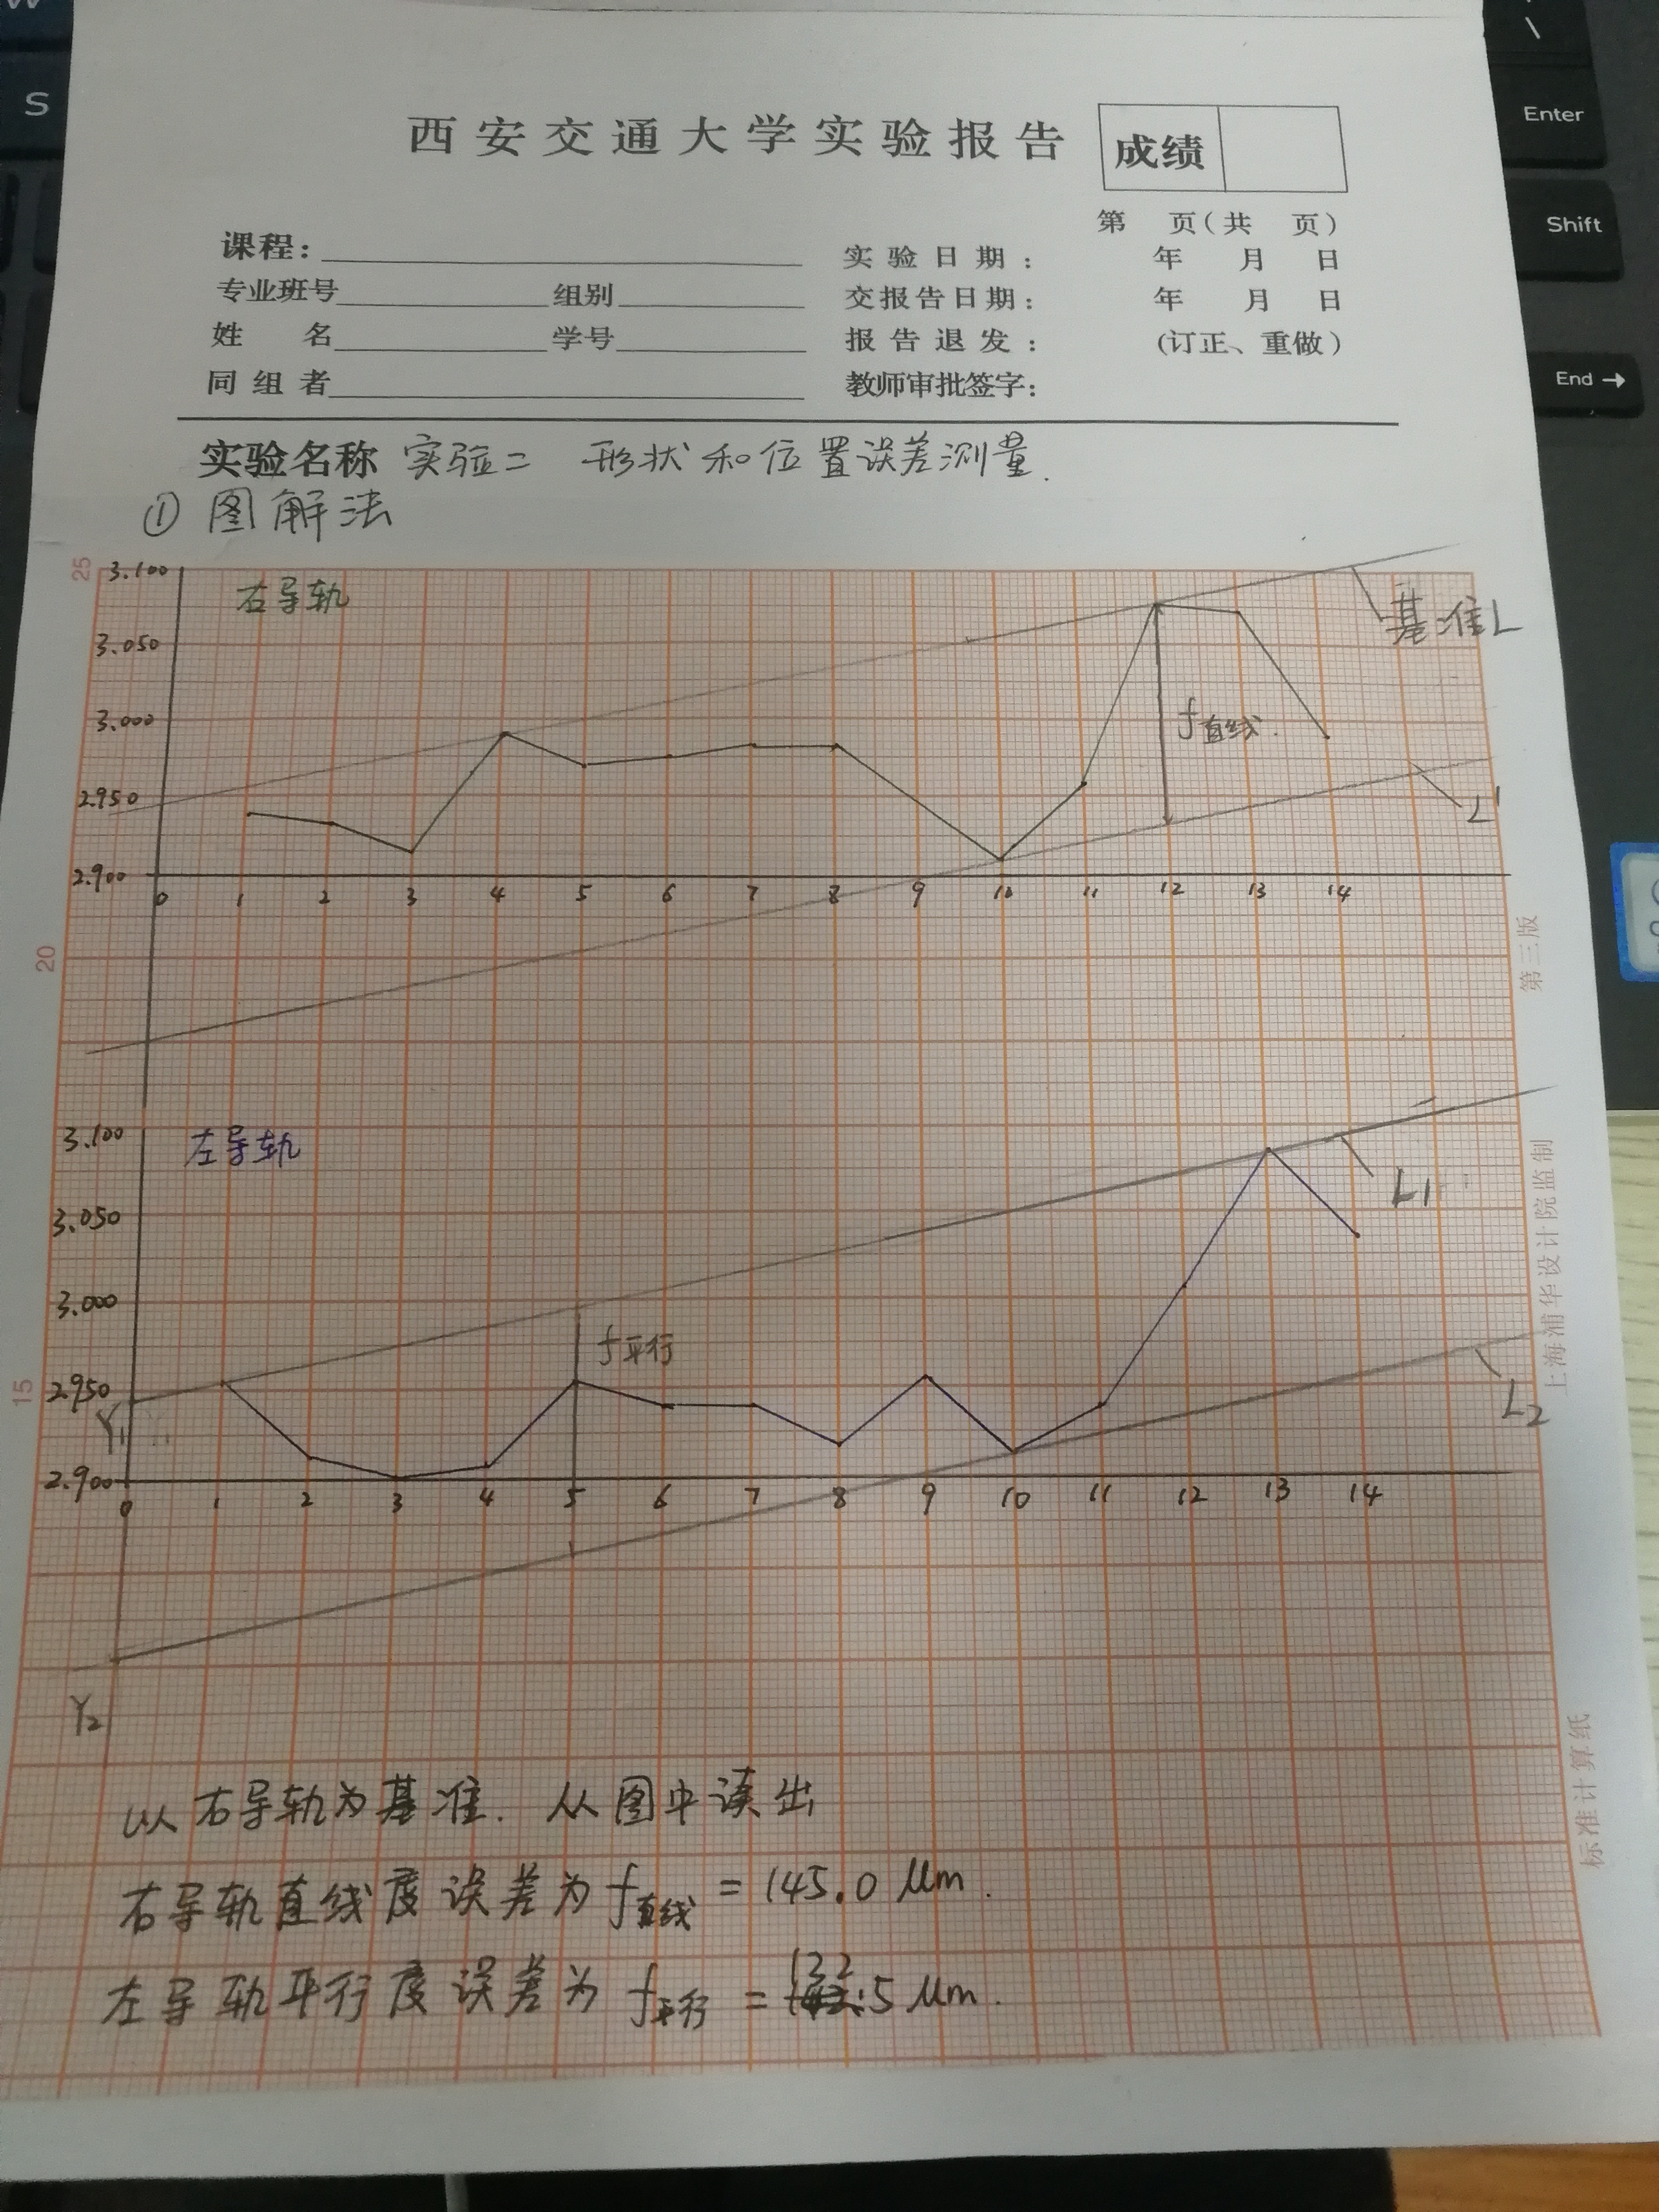 W
S
\
Enter
Shift
End →
西安交通大学实验报告
成绩
第 页(共 页)
课程:
实验日期: 年 月 日
专业班号 组别
交报告日期: 年 月 日
姓 名 学号
报告退发: (订正、重做)
同组者
教师审批签字:
实验名称 实验二 形状和位置误差测量.
① 图解法
25
3.100
右导轨
基准L
3.050
3.000
f直线.
2.950
L'
2.900
0 1 2 3 4 5 6 7 8 9 10 11 12 13 14
20
第三版
3.100
左导轨
L1
3.050
3.000
f平行
15
2.950
Y1
L2
2.900
0 1 2 3 4 5 6 7 8 9 10 11 12 13 14
Y2
上海浦华设计院监制
标准计算纸
以右导轨为基准. 从图中读出
右导轨直线度误差为f直线 = 145.0 μm.
左导轨平行度误差为 f平行 = 132.5 μm.